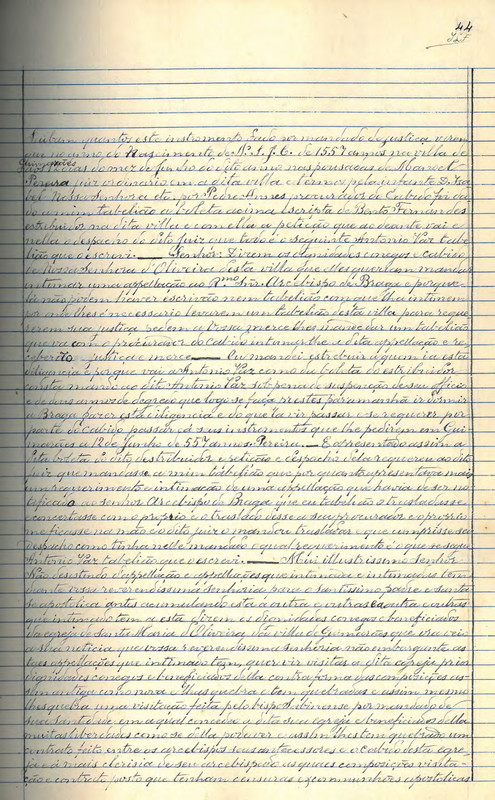 44
Saibam quantos este instromento dado por mandado de justiça virem
que no anno do Nascimento de N. S. J. C. de 1557 annos na villa de
Guimarães dias do mez de Junho do dito anno nas pousadas de Manoel
Pereira juiz ordinario em a dita villa e termo pela infante D. Isa
bel Nossa Senhora ahi por Pedro Annes procurador do Cabido foi da
do a mim tabelião a boleta acima escripta de Bento Fernandes
estribuidor na dita villa e com ella a petição que ao deante vai e
nella o despacho do dito juiz que todo é o seguinte Antonio Vaz tabe
lião que o escrevi. — Senhor: Dizem os dignidades conegos e cabido
de Nossa Senhora d'Oliveira desta villa que elles querem mandar
intimar uma appellação ao Rmo Snr. Arcebispo de Braga e porque
lá não podem haver escrivão nem tabelião com que lha intimem
por onde lhes é necessario levarem um tabelião desta villa para reque
rerem sua justiça pedem a vossa merce lhes mande dar um tabelião
que va com o procurador do cabido intimar-lhe a dita appellação e re
ceberão justiça e merce — Eu mandei estribuir a quem ia esta
diligencia e porque vai ao Antonio Vaz como da boleta do estribuidor
consta mando ao dito Antonio Vaz sob pena de suspenção de seu officio
e de dous annos de degredo que logo se faça prestes para manhã ir dormir
a Braga fazer esta diligencia e do que la vir passar e se requerer por
parte do cabido passará seus instrementos que lhe pedirem em Gui
marães a 12 de Junho de 557 annos. Pereira. — E apresentado assim a
dita boleta do dito destribuidor e petição e despacho dela requereu ao dito
juiz que mandasse a mim tabelião que por quanto apresentação mais
um requerimento e intimação de uma appellação que havia de ser no
tificada ao senhor Arcebispo de Braga que eu tabelião o trasladasse
e concertasse com o proprio e o traslado desse a seu procurador e o proprio
me ficasse na mão e o dito juiz o mandou trasladar e que cumprisse seu
despacho como tinha nelle mandado o qual requerimento é o que se segue
Antonio Vaz tabelião que o escrevi. — Mui illustrissimo senhor
Não desistindo d'appellação e appellações que intimaram e intimadas tem
diante vossa reverendissima senhoria para o santissimo padre e santa
sé apostolica antes acumulando esta á outra e outras e a outra e outras
que intimado tem a esta dizem os dignidades conegos e beneficiados
da egreja de santa Maria d'Oliveira da villa de Guimarães que veio
a sua noticia que vossa reverendissima senhoria não embargante as
suas appellações que intimado tem, quer vir visitar a dita egreja prior
dignidades conegos e beneficiados della contra forma das composições as
sim antiga como nova e lhas quebra e tem quebradas e assim mesmo
lhes quebra uma visitação feita pelo bispo Sabinense por mandado de
sua santidade, em a qual concede á dita sua egreja e beneficiados della
muitas liberdades como se della pode ver e assim lhes tem quebrado um
contrato feito entre os arcebispos seus antecessores e o cabido desta egre
ja e a mais clerisia de seu arcebispado as quaes composições visita
ção e contrato posto que tenham censuras e excommunhões apostolicas